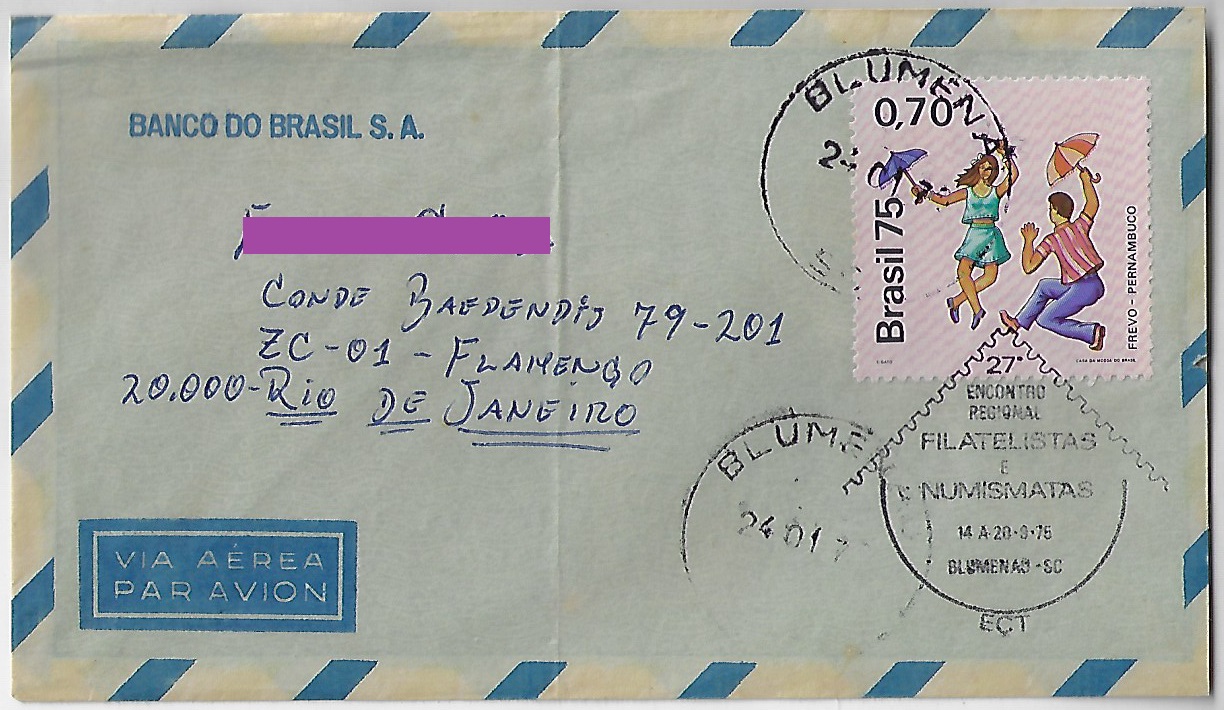 BANCO DO BRASIL S. A.
CONDE BAEPENDIJ 79-201
ZC-01 - FLAMENGO
20.000-RIO DE JANEIRO
VIA AÉREA
PAR AVION
BLUMENA
0,70
Brasil 75
FREVO - PERNAMBUCO
CASA DA MOEDA DO BRASIL
BLUME
24 01 7
27º
ENCONTRO
REGIONAL
FILATELISTAS
E
NUMISMATAS
14 A 20-9-75
BLUMENAU - SC
ECT